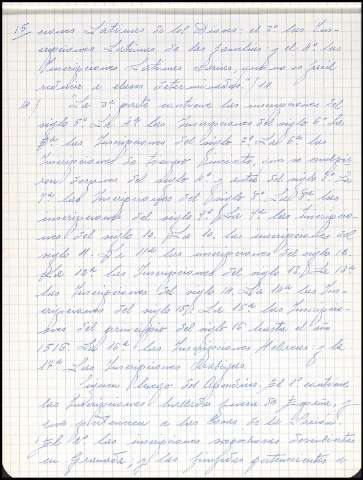 15 ciones Latinas de los Dioses: el 3º las Ins-
cripciones Latinas de las familias y el 4º las
Inscripciones Latinas varias, que no es fácil
reducir a clases determinadas" / 14
14 / "La 3ª parte contiene las inscripciones del
siglo 5º La 4ª las Inscripciones del siglo 6º La
5ª las Inscripciones del siglo 7º La 6ª las
Inscripciones de tiempo
del siglo 4º y antes del siglo 8º La
7ª las Inscripciones del siglo 8º La 8ª las
inscripciones del siglo 9º La 9ª las inscripcio-
nes del siglo 10. La 10. las inscripciones del
siglo 11. La 11ª las inscripciones del siglo 12.
La 12ª las Inscripciones del siglo 13. La 13ª
las Inscripciones del siglo 14. La 14ª las Ins-
cripciones del siglo 15. La 15ª las Inscripcio-
nes del principio del siglo 16 hasta el año
1516. La 16ª las Inscripciones Hebreas y la
17ª Las Inscripciones Arabigas.
Siguen luego dos Apendices. El 1º contiene
las Inscripciones halladas fuera de España, y
que pertenecen a las cosas de la Nación
El 2º las inscripciones
en Granada; y las fingidas pertenecientes a